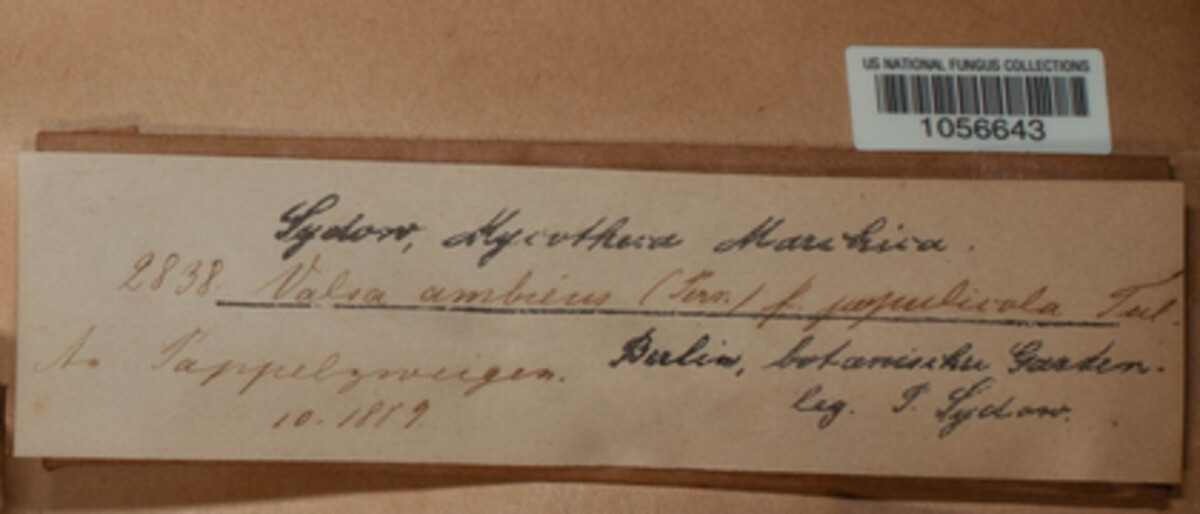 US NATIONAL FUNGUS COLLECTIONS
1056643
Sydow, Mycotheca Marchica.
2838. Valsa ambiens (Pers.) f. populicola Tul.
An Pappelzweigen.
Berlin, botanischer Garten.
10.1889
leg. P. Sydow.